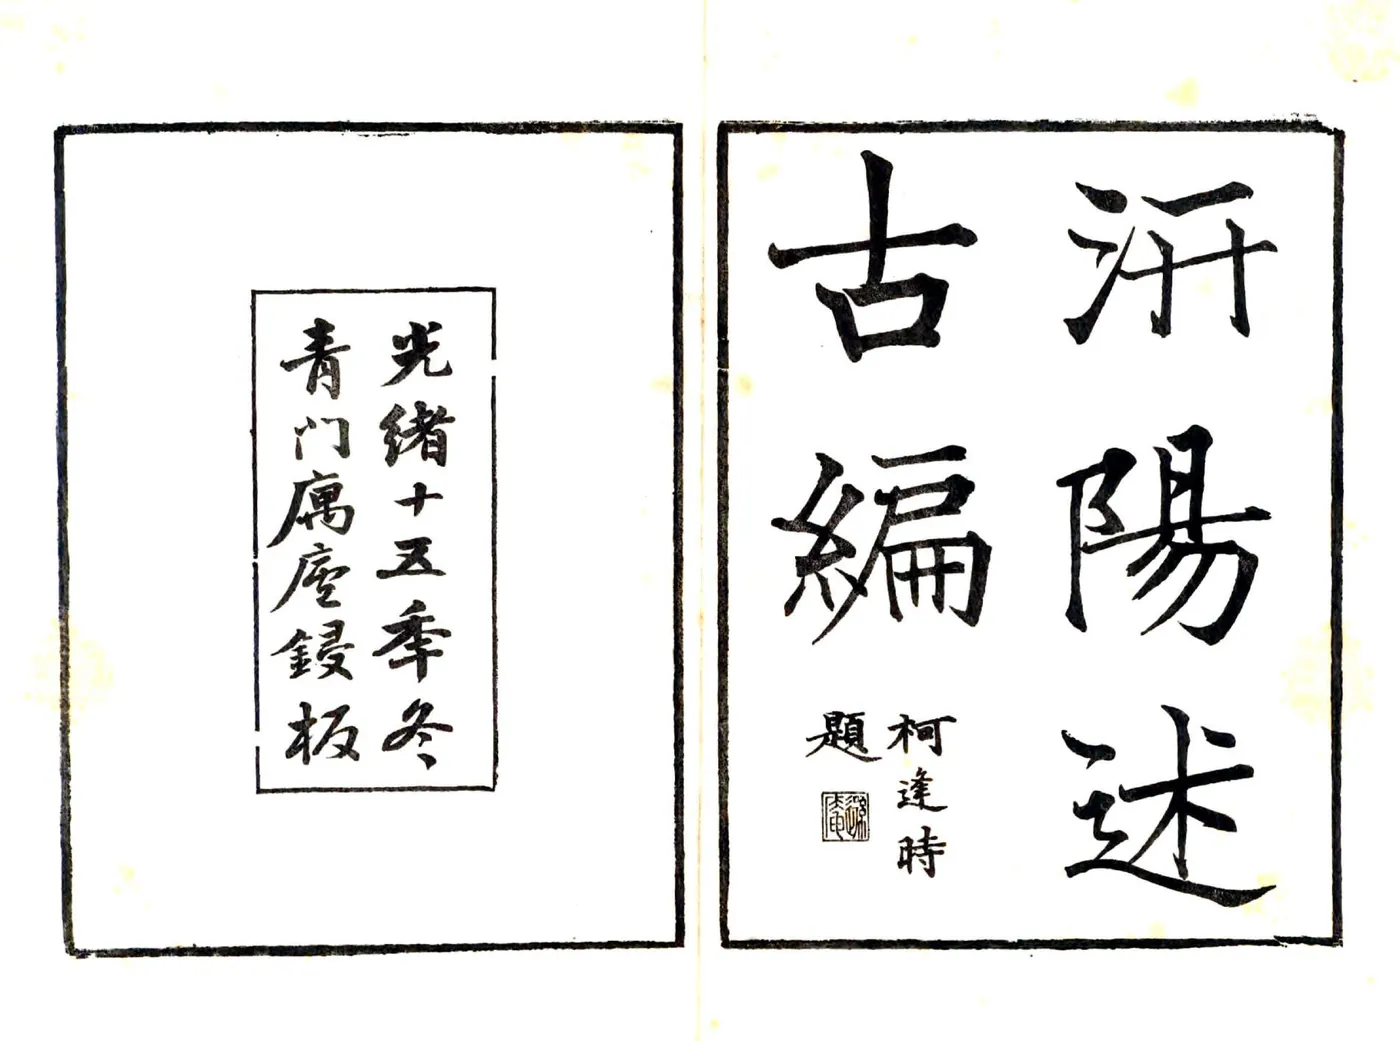 汧陽述
古編
柯逢時
題
光緒十五秊冬
青門庽廬鋟板